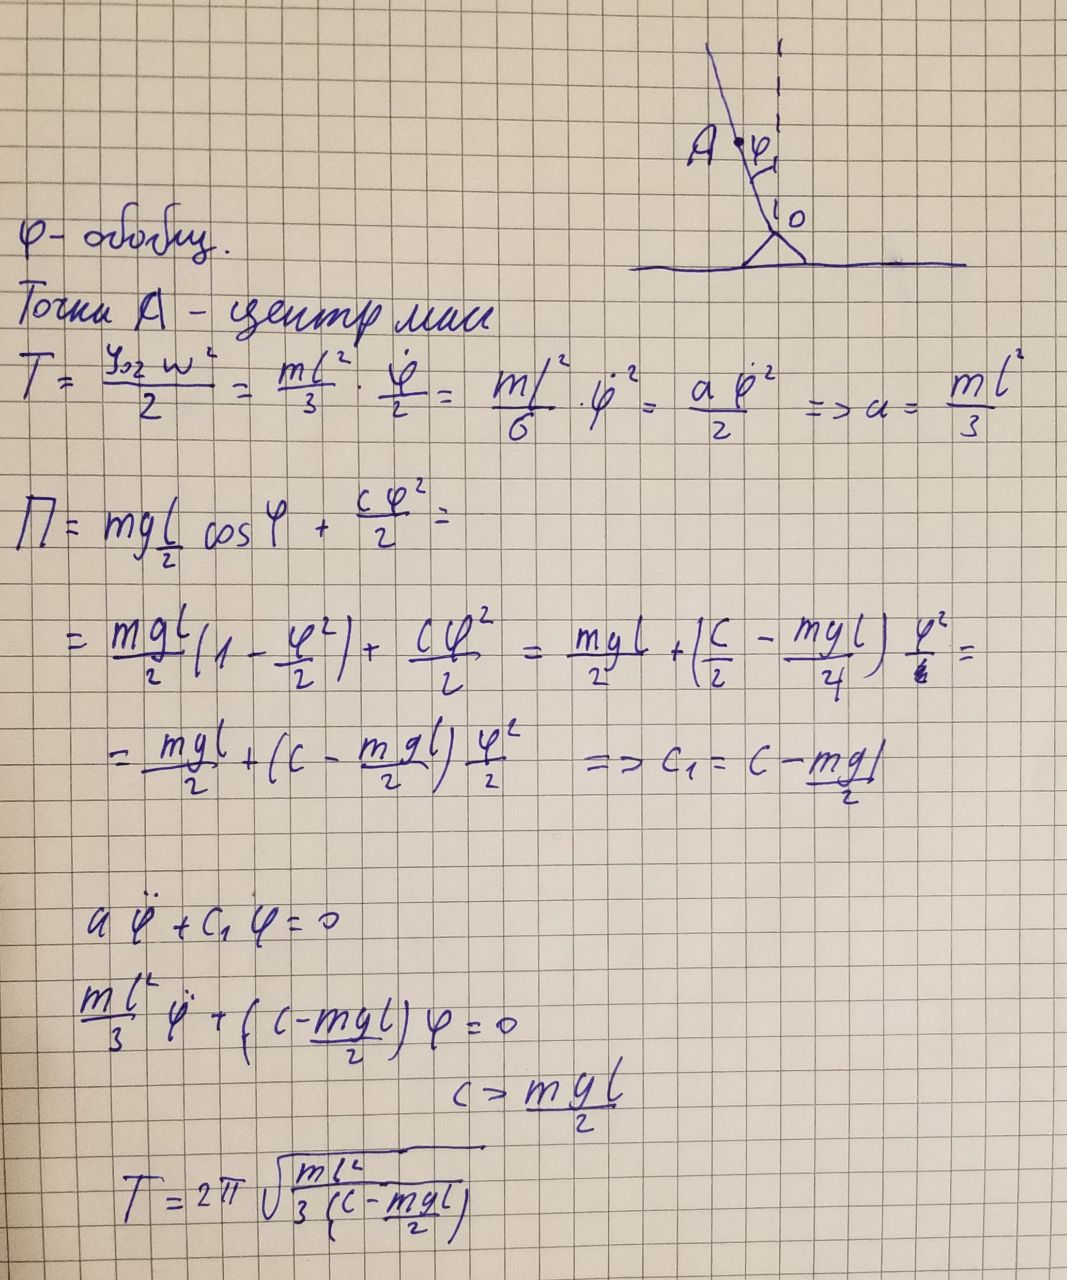 A φ
O
φ - обобщ.
Точка A - центр масс
T = J₀z ω² / 2 = ml²/3 · φ̇/2 = ml²/6 · φ̇² = a φ̇²/2 => a = ml²/3
П = mg l/2 cos φ + cφ²/2 =
= mgl/2 (1 - φ²/2) + cφ²/2 = mgl/2 + (c/2 - mgl/4) φ² =
= mgl/2 + (c - mgl/2) φ²/2 => c₁ = c - mgl/2
a φ̈ + c₁ φ = 0
ml²/3 φ̈ + (c - mgl/2) φ = 0
c > mgl/2
T = 2π √(ml² / 3(c - mgl/2))